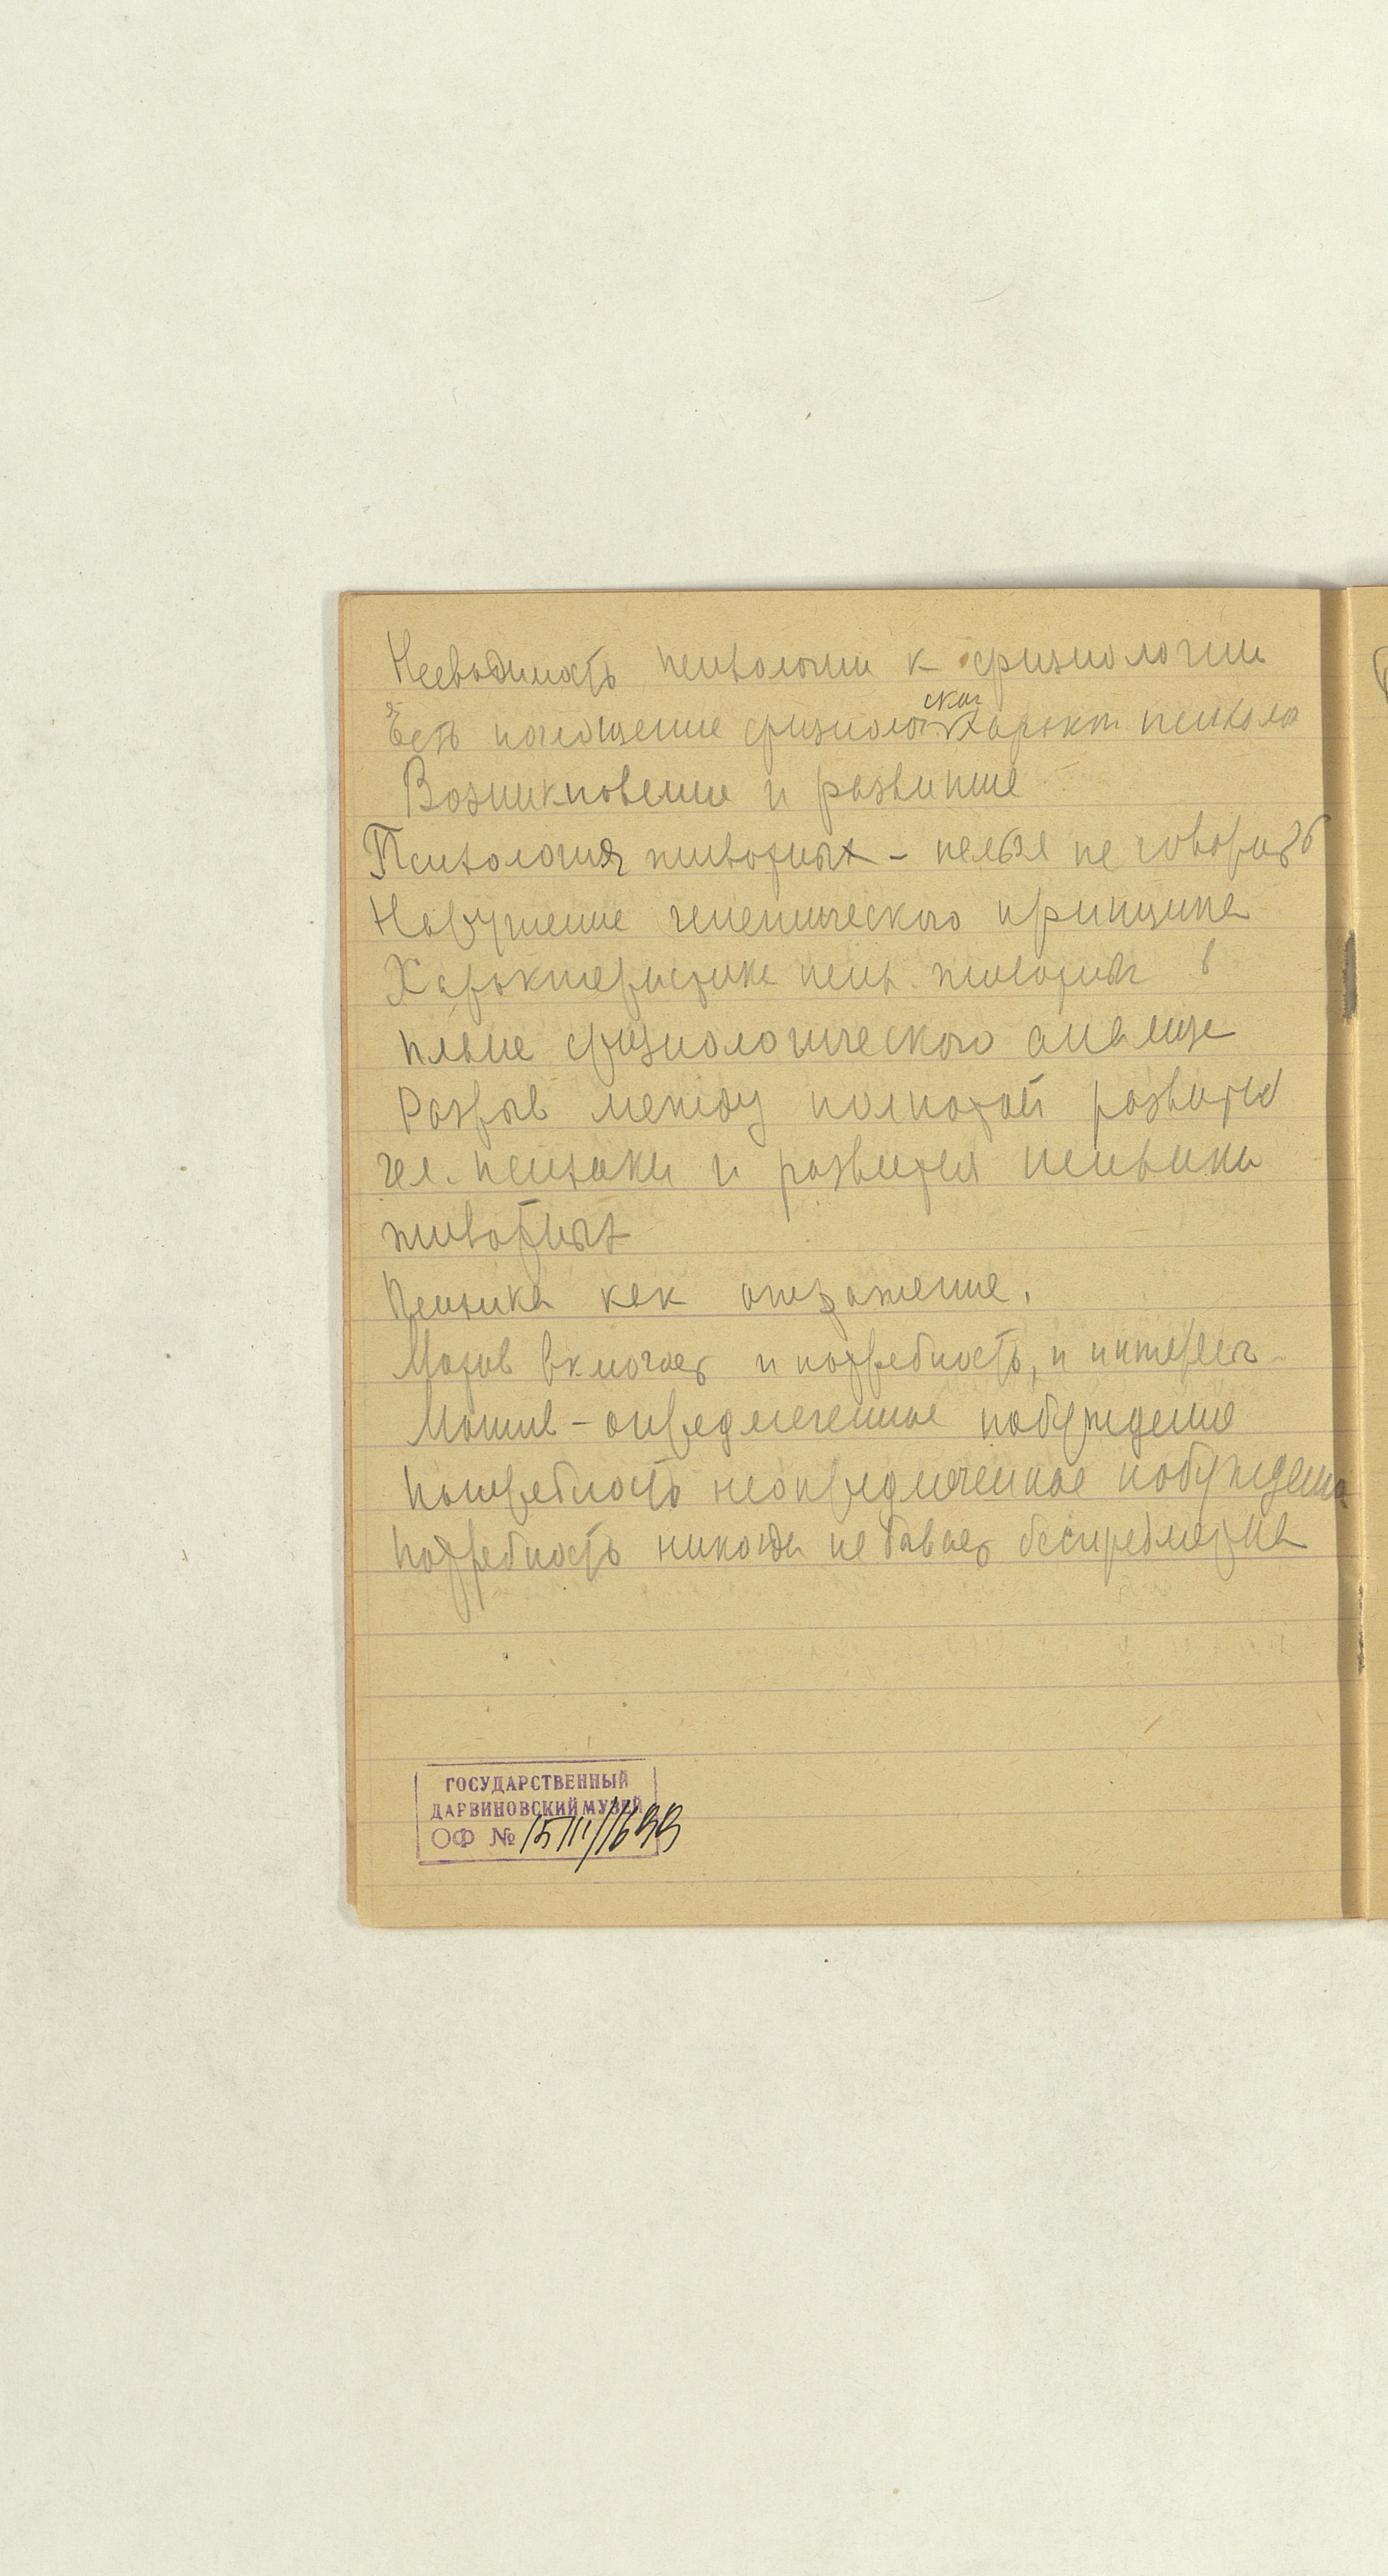 Несводимость психологии к физиологии
Есть поглощение физиологическ характ психоло
Возникновение и развитие
Психология животных – нельзя не говорить
Нарушение генетического принципа
Характеристика псих. животных в
плане физиологического анализа
Разрыв между полнотой развития
чел. психики и развития психики
животных
Психика как отражение.
Мотив включает и потребность, и интерес
Мотив – опредмеченное побуждение
Потребность неопредмеченное побуждение
Потребность никогда не бывает беспредметна
ГОСУДАРСТВЕННЫЙ
ДАРВИНОВСКИЙ МУЗЕЙ
ОФ №